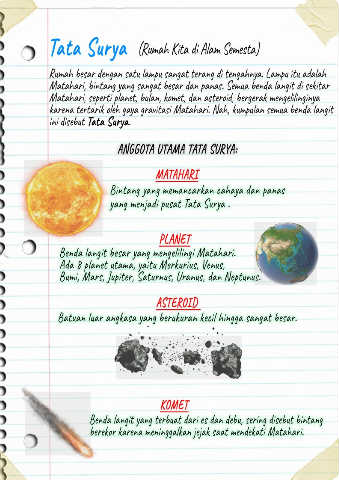 Tata Surya (Rumah Kita di Alam Semesta)
Rumah besar dengan satu lampu sangat terang di tengahnya. Lampu itu adalah
Matahari, bintang yang sangat besar dan panas. Semua benda langit di sekitar
Matahari, seperti planet, bulan, komet, dan asteroid, bergerak mengelilinginya
karena tertarik oleh gaya gravitasi Matahari. Nah, kumpulan semua benda langit
ini disebut Tata Surya.
ANGGOTA UTAMA TATA SURYA:
MATAHARI
Bintang yang memancarkan cahaya dan panas
yang menjadi pusat Tata Surya .
PLANET
Benda langit besar yang mengelilingi Matahari.
Ada 8 planet utama, yaitu Merkurius, Venus,
Bumi, Mars, Jupiter, Saturnus, Uranus, dan Neptunus.
ASTEROID
Batuan luar angkasa yang berukuran kecil hingga sangat besar.
KOMET
Benda langit yang terbuat dari es dan debu, sering disebut bintang
berekor karena meninggalkan jejak saat mendekati Matahari.